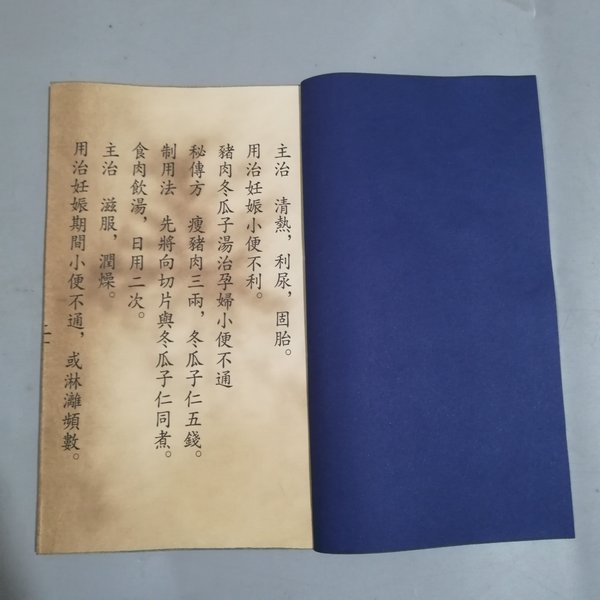 主治　清熱，利尿，固胎。
用治妊娠小便不利。
豬肉冬瓜子湯治孕婦小便不通
秘傳方　瘦豬肉三兩，冬瓜子仁五錢。
制用法　先將向切片與冬瓜子仁同煮。
食肉飲湯，日用二次。
主治　滋服，潤燥。
用治妊娠期間小便不通，或淋灕頻數。